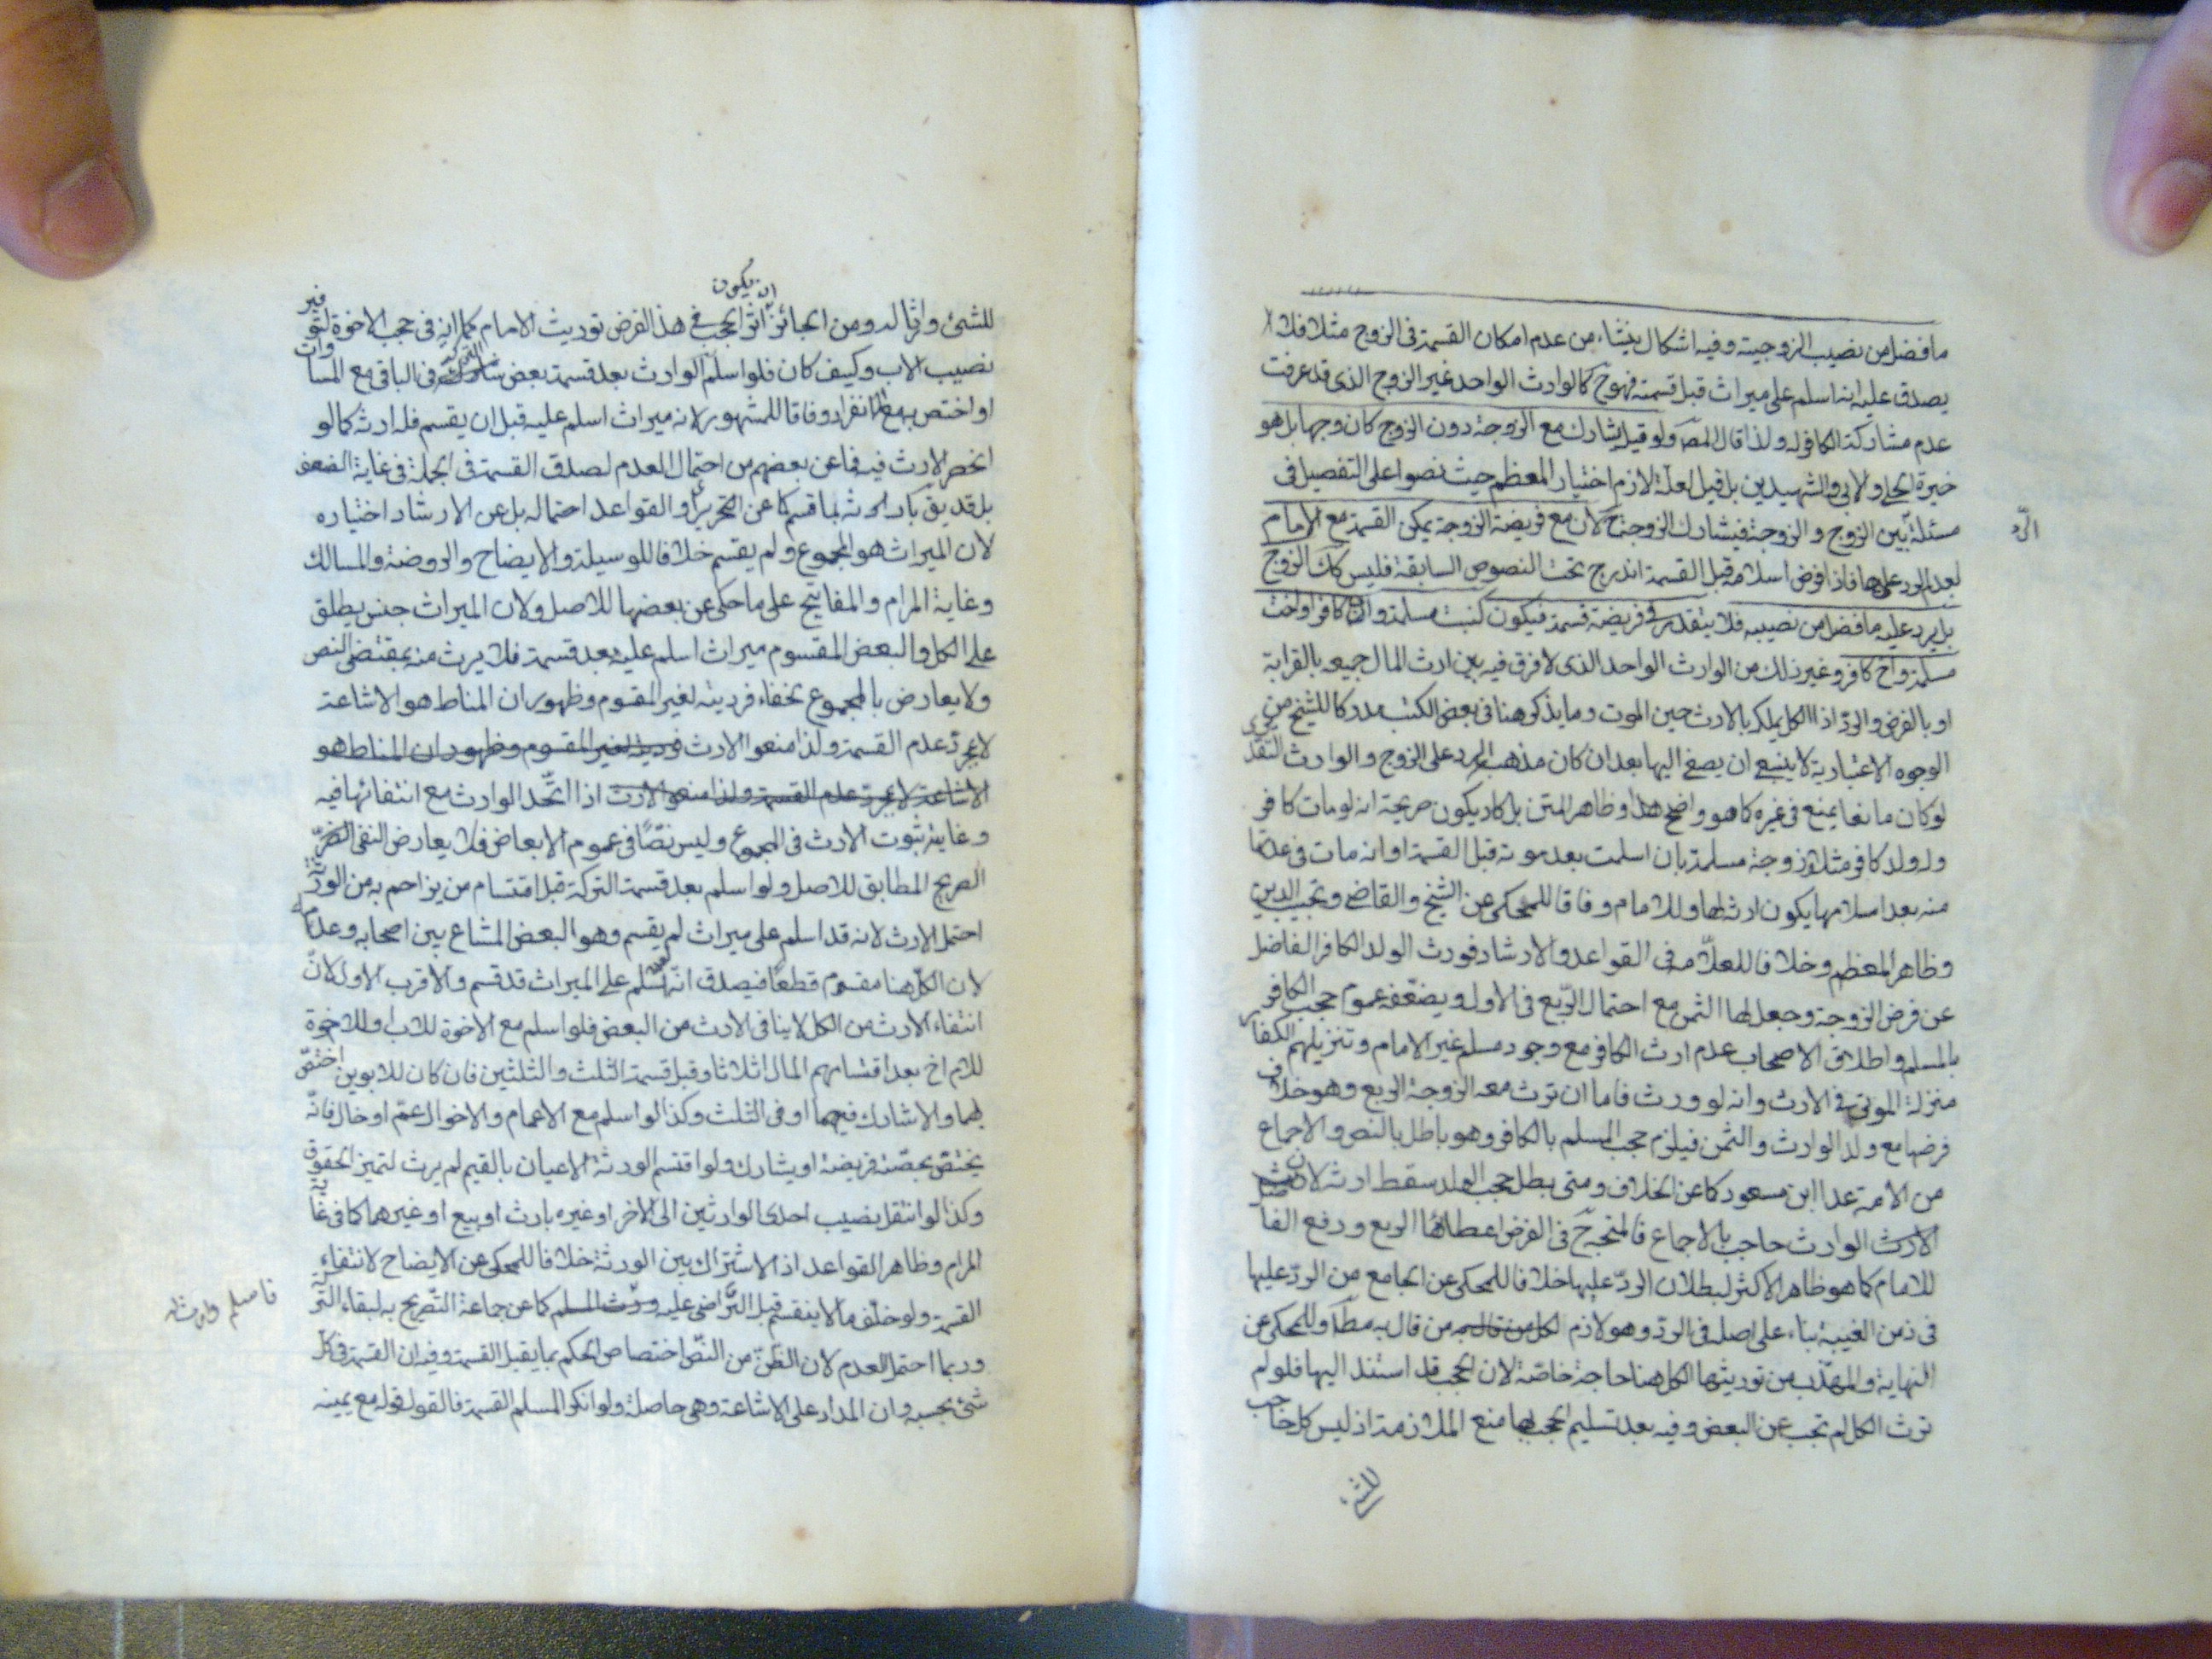 ما فضل من نصيب الزوجية وفيه اشكال ينشاء من عدم امكان القسمة فى الزوج مثلا فلا
يصدق عليه انه اسلم على ميراث قبل قسمته فهو ح كالوارث الواحد غير الزوج الذى قد عرفت
عدم مشاركة الكافر له ولذا قال المصَ ولو قيل يشارك مع الزوجة دون الزوج كان وجها بل هو
خيرة الحلى والابى والشهيدين بل قيل لعلّه لازم اختيار المعظم حيث نصوا على التفصيل فى
مسئلة بين الزوج و الزوجة فيشارك الزوجة ح لان مع فريضة الزوجة يمكن القسمة مع الامام
الرّد
لعدم الرد عليها فاذا فرض اسلامه قبل القسمة اندرج تحت النصوص السابقة فليس كك الزوج
بل يرد عليه ما فضل من نصيبه فلا يتقدر فى فريضة قسمة فيكون كبنت مسلمة واب كافر او اخت
مسلمة واخ كافر وغير ذلك من الوارث الواحد الذى لا فرق فيه بين ارث المال جميعه بالقرابة
او بالفرض والردّ اذ الكل يملك بالارث حين الموت وما يذكر هنا فى بعض الكتب مدركا للشيخ من
الوجوه الاعتبارية لا ينبغى ان يصغى اليها بعد ان كان مذهب الرد على الزوج والوارث التقديرى
لو كان مانعا يمنع فى غيره كما هو واضح هذا وظاهر المتن بل كاد يكون صريحة انه لو مات كافر
وله ولد كافر مثلا وزوجة مسلمة بان اسلمت بعد موته قبل القسمة او انه مات فى عدتها
منه بعد اسلامها يكون ارثه لها وللامام وفاقا للمحكى عن الشيخ والقاضى ونجيب الدين
وظاهر المعظم وخلافا للعلّامه فى القواعد والارشاد فورث الولد الكافر الفاضل
عن فرض الزوجة وجعل لها الثمن مع احتمال الرّبع فى الاول ويضعّفه عموم حجب الكافر
بالمسلم واطلاق الاصحاب عدم ارث الكافر مع وجود مسلم غير الامام وتنزيلهم الكفار
منزلة الموتى فى الارث وانه لو ورث فاما ان ترث معه الزوجة الربع وهو خلاف
فرضها مع ولد الوارث والثمن فيلزم حجب المسلم بالكافر وهو باطل بالنص والاجماع
من الامة عدا ابن مسعود كما عن الخلاف ومتى بطل حجب الولد سقط ارثه لان
الارث الوارث حاجب بالاجماع فالمتجه ح فى الفرض اعطائها الربع ورفع الفاضل
للامام كما هو ظاهر الاكثر لبطلان الردّ عليها خلافا للمحكى عن الجامع من الردّ عليها
فى زمن الغيبة بناء على اصله فى الرد وهو لازم لكل من قال به من قال به مطَ وللمحكى عن
النهاية والمهذّب من توريثها الكل هنا حاجة خاصّة لان الحجب قد استند اليها فلو لم
ترث الكل لم تحجب عن البعض وفيه بعد تسليم الحجب لها منع الملازمة اذ ليس كل حاجب
للشئ
للشئ وارثا له ومن الجائز ان يكون اثر الحجب فى هذا الفرض توريث الامام كما انه فى حجب الاخوة لتوفير
نصيب الاب وكيف كان فلو اسلم الوارث بعد قسمة بعض التركة شارك فى الباقى مع المساوات
او اختص به مع انفراد وفاقا للمشهور لانه ميراث اسلم عليه قبل ان يقسم فله ارثه كما لو
انحصر الارث فيه فما عن بعضهم من احتمال العدم لصدق القسمة فى الجملة فى غاية الضعف
بل قد يق بكل ارثه لما قسم كما عن التحرير و القواعد احتماله بل عن الارشاد اختياره
لان الميراث هو المجموع ولم يقسم خلافا للوسيلة والايضاح والروضة والمسالك
وغاية المرام والمفاتيح على ما حكى عن بعضها للاصل ولان الميراث جنس يطلق
على الكل والبعض المقسوم ميراث اسلم عليه بعد قسمة فلا يرث منه بمقتضى النص
ولا يعارض بالمجموع لخفاء فرديته لغير المقسوم وظهور ان المناط هو الاشاعة
لا مجرّد عدم القسمة ولذا منعوا الارث فرديته لغير المقسوم وظهور ان المناط هو
الاشاعة لا مجرد عدم القسمة ولذا منعوا الارث اذا اتّحد الوارث مع انتفائها فيه
وغايته ثبوت الارث فى المجموع وليس نصّاً فى عموم الابعاض فلا يعارض النفى
الصريح المطابق للاصل ولو اسلم بعد قسمة التركة قبل اقتسام من يزاحم به من الورثة
احتمل الارث لانه قد اسلم على ميراث لم يقسم وهو البعض المشاع بين اصحابه وعدمه
لان الكل هنا مقسوم قطعاً فيصدق انّه اسلم على الميراث قد قسم والاقرب الاول لانّ
انتفاء الارث من الكل لا ينافى الارث من البعض فلو اسلم مع الاخوة للاب وللاخوة
للام اخ بعد اقتسامهم المال اثلاثا وقبل قسمة الثلث والثلثين فان كان للابوين اختصّ
بهما والا شارك فيهما او فى الثلث وكذا لو اسلم مع الاعمام والاخوال عمّ او خال فانّه
يختصّ بحصّته فريضة او يشارك ولو اقتسم الورثة الاعيان بالقيم لم يرث لتميز الحقوق
وكذا لو انتقل نصيب احدى الوارثين الى الاخر او غيره بارث او بيع او غيرهما كما فى غاية
المرام وظاهر القواعد اذ لا اشتراك بين الورثة خلافا للمحكى عن الايضاح لانتفاء
القسمة ولو خلّف ما لا ينقسم قبل التّراضى عليه ورث المسلم كما عن جماعة التّصريح به لبقاء التركة
فاسلم وارثه
وربما احتمل العدم لان الظنّ من النصّ اختصاص الحكم بما يقبل القسمة وفيه ان القسمة فى كل
شئ بحسبه وان المدار على الاشاعة وهى حاصلة ولو انكر المسلم القسمة فالقول قوله مع يمينه